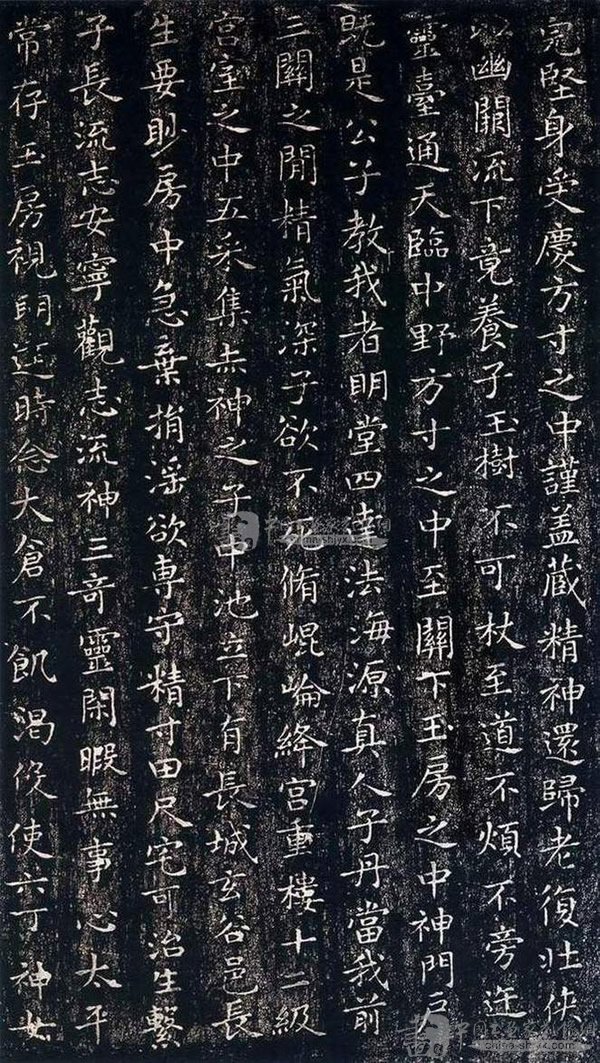 完堅身受慶方寸之中謹盖蔵精神還歸老復壯俠
以幽闕流下竟養子玉樹不可杖至道不煩不旁迕
靈臺通天臨中野方寸之中至關下玉房之中神門戶
既是公子教我者明堂四達法海源真人子丹當我前
三關之間精氣深子欲不死脩崐崘絳宫重樓十二級
宫室之中五采集赤神之子中池立下有長城玄谷邑長
生要眇房中急棄捐淫欲専守精寸田尺宅可治生繫
子長流志安寧觀志流神三奇靈閑暇無事心太平
常存玉房視明達時念大倉不飢渴役使六丁神女